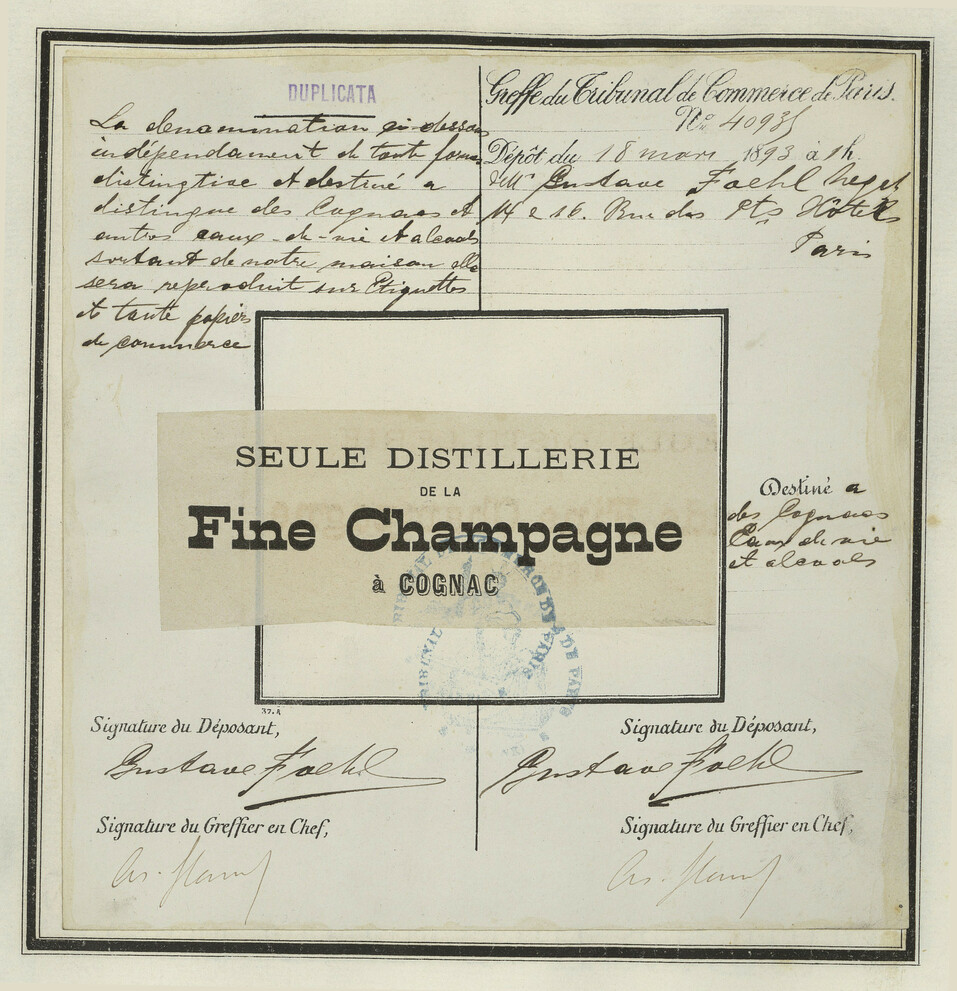 DUPLICATA
La denomination ci-dessous
indépendament de toute forme
distingtive et destiné a
distingue des Cognacs et
autres eaux-de-vie et alcools
sortant de notre maison elle
sera reproduit sur Etiquettes
et toute papiers
de commerce
Greffe du Tribunal de Commerce de Paris.
No. 40935
Dépôt du 18 mars 1893 à 1h.
Gustave Foehl Negt
14 e 16. Rue des Pts Hôtels
Paris
SEULE DISTILLERIE
DE LA
Fine Champagne
à COGNAC
Destiné a
des Cognacs
Eaux de vie
et alcools
TRIBUNAL DE PARIS
37.A
Signature du Déposant,
Gustave Foehl
Signature du Greffier en Chef,
Signature du Déposant,
Gustave Foehl
Signature du Greffier en Chef,